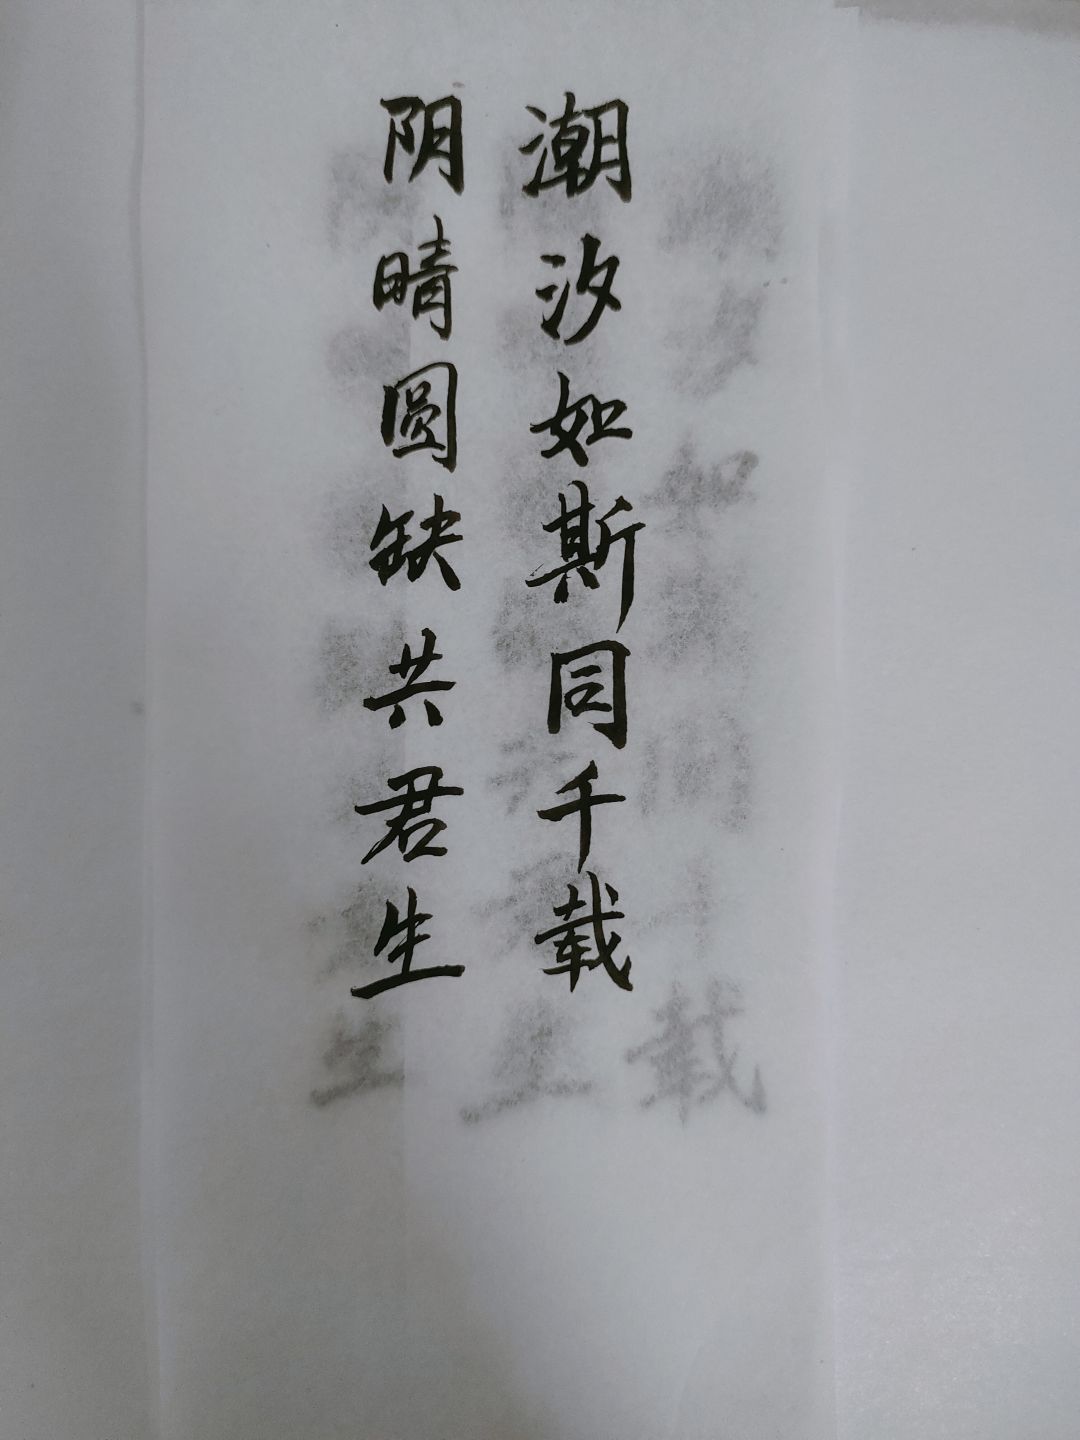 潮汐如斯同千载
阴晴圆缺共君生